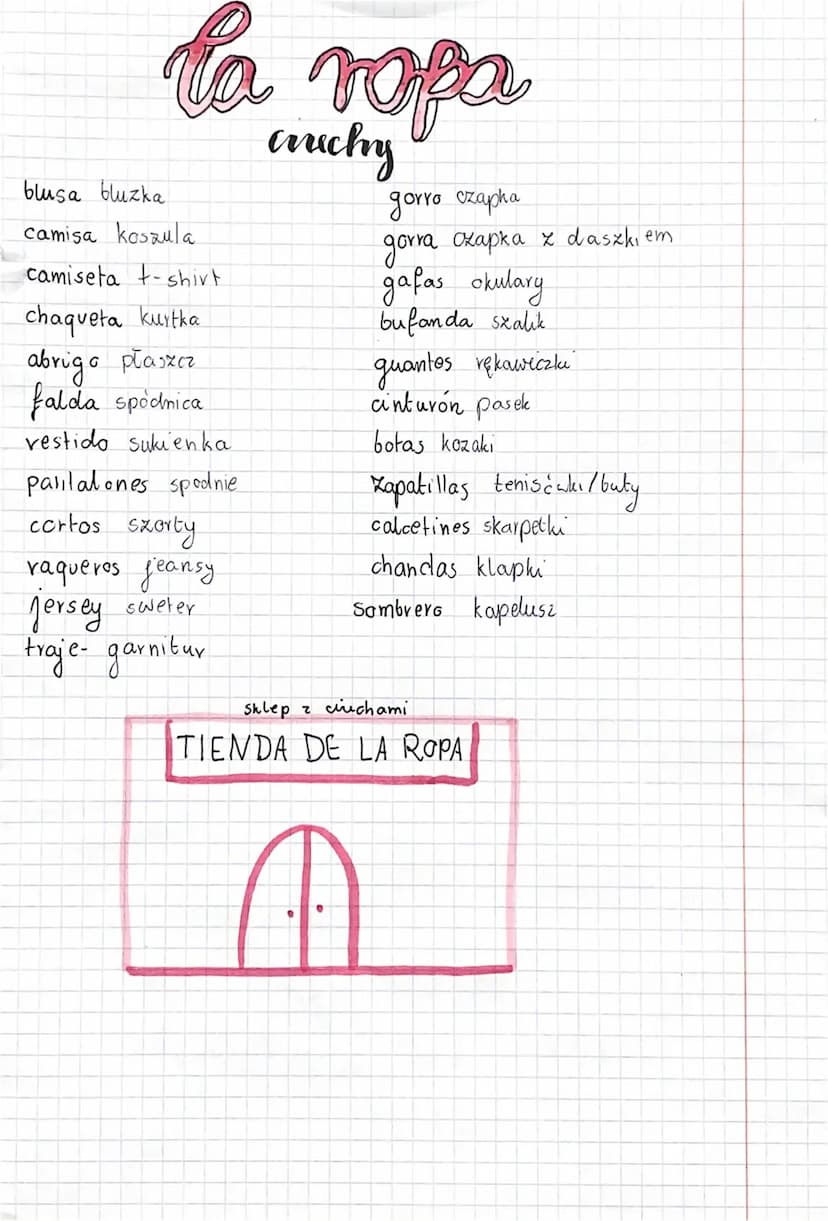 la ropa
ciuchy
blusa bluzka
camisa koszula
camiseta t-shirt
chaqueta kurtka
abrigo płaszcz
falda spódnica
vestido sukienka
pantalones spodnie
cortos szorty
vaqueros jeansy
jersey sweter
traje- garnitur
gorro czapka
gorra czapka z daszkiem
gafas okulary
bufanda szalik
guantes rękawiczki
cinturón pasek
botas kozaki
zapatillas tenisówki/buty
calcetines skarpetki
chanclas klapki
sombrero kapelusz
sklep z ciuchami
TIENDA DE LA ROPA